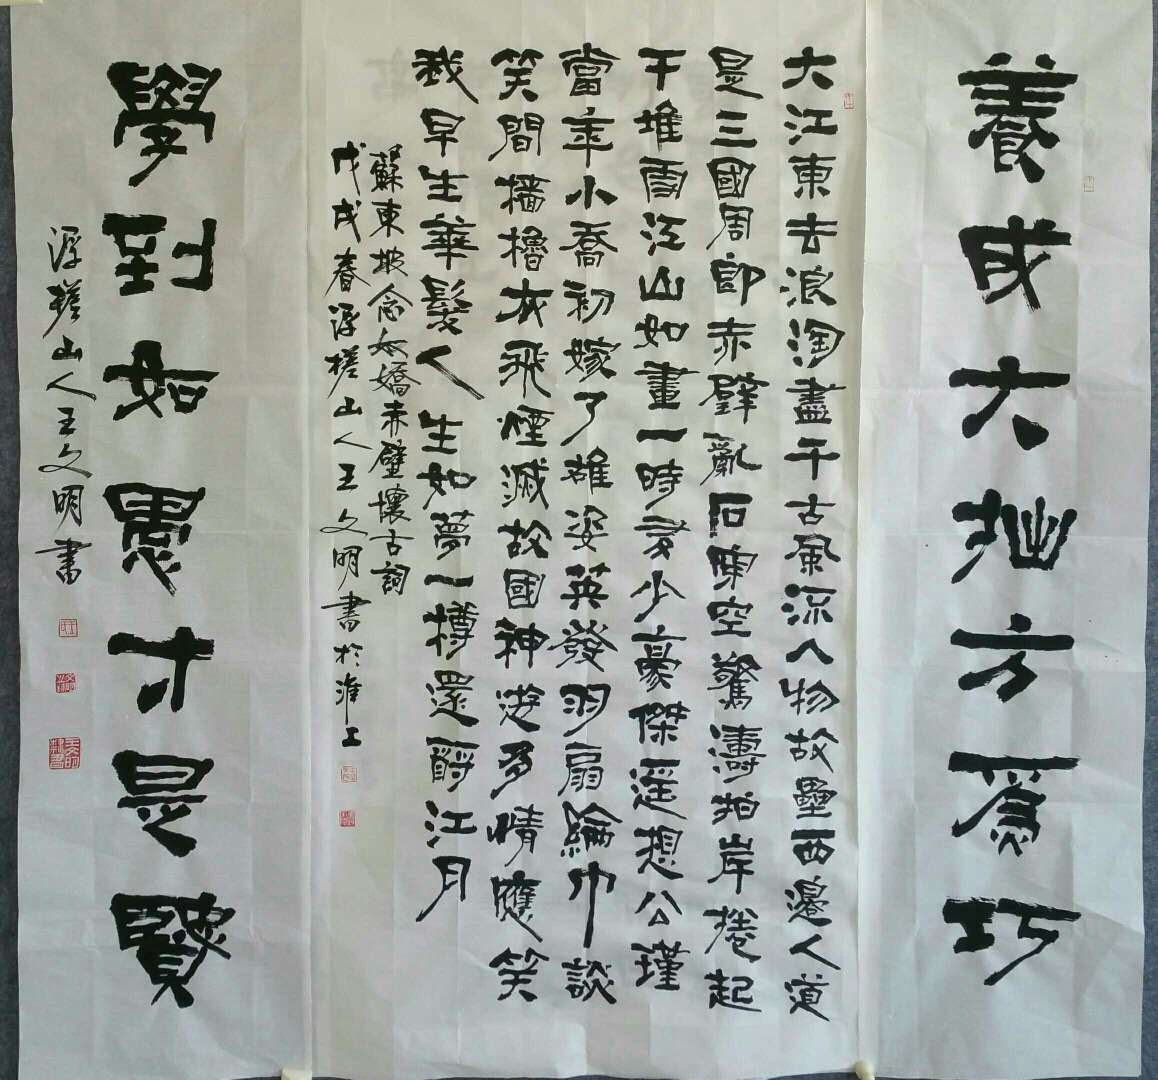 養成大拙方爲巧
大江東去浪淘盡千古風流人物故壘西邊人道
是三國周郎赤壁亂石空驚濤拍岸捲起
千堆雪江山如畫一時多少豪傑遥想公瑾
當年小喬初嫁了雄姿英發羽扇綸巾談
笑間檣櫓灰飛煙滅故國神游多情應笑
我早生華髮人生如夢一樽還酹江月
蘇東坡念奴嬌赤壁懷古詞
戊戌春浮槎山人王文明書於淮上
學到如愚才是賢
浮槎山人王文明書